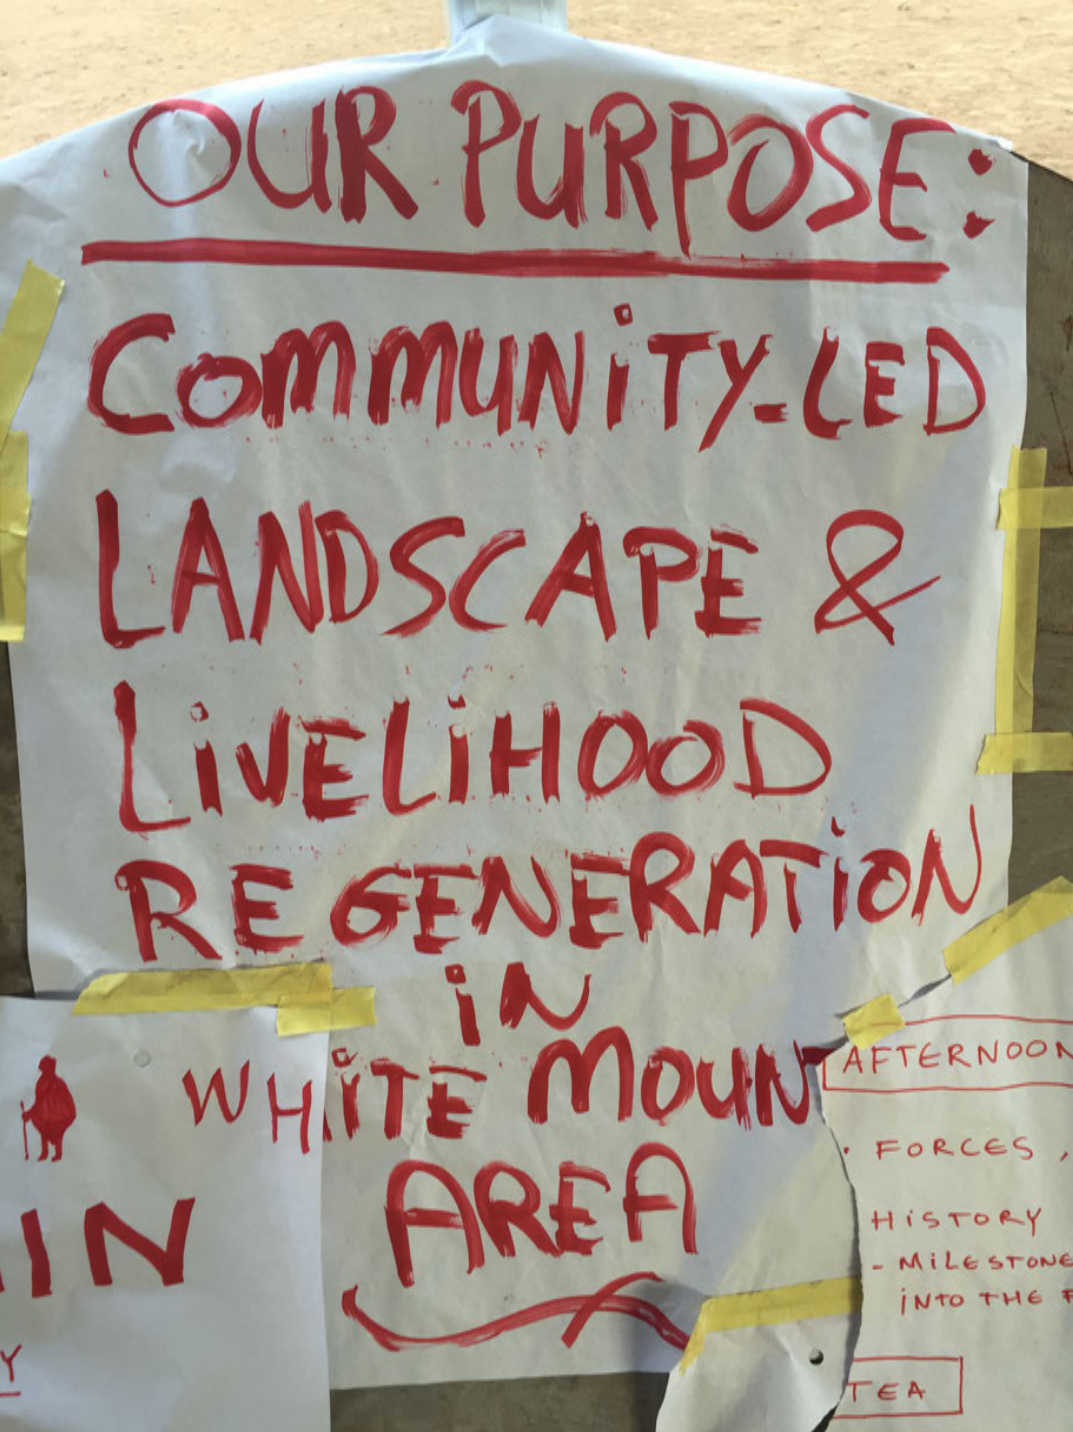 OUR PURPOSE:
COMMUNITY-LED
LANDSCAPE &
LIVELIHOOD
REGENERATION
IN
WHITE MOUN
AREA
IN
Y
AFTERNOON
• FORCES,
HISTORY
- MILESTONE
INTO THE F
TEA